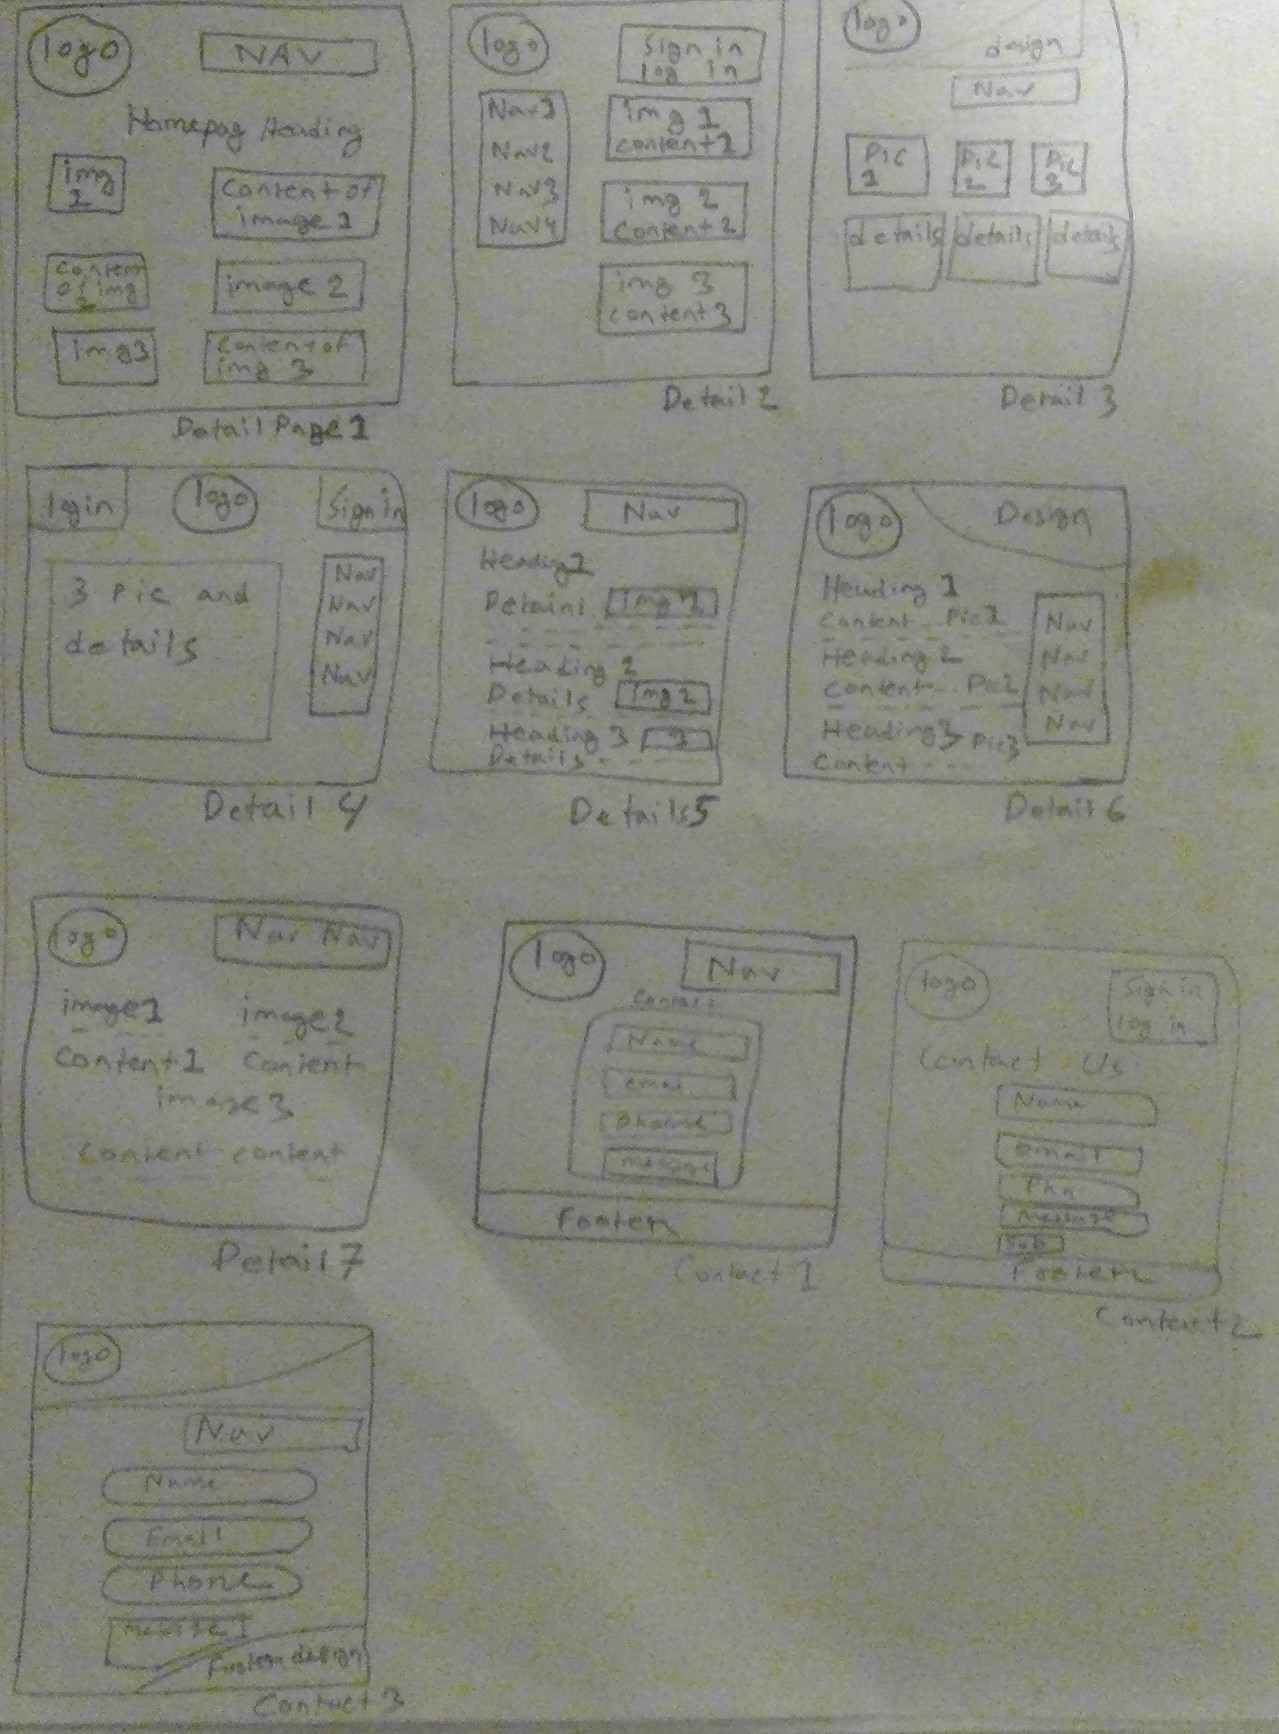 logo
NAV
Homepag Heading
img
1
Content of
image 1
Content
of img
2
image 2
img3
Content of
img 3
Detail Page 1
logo
Sign in
log in
Nav1
Nav2
Nav3
Nav4
img 1
content 1
img 2
Content 2
img 3
content 3
Detail 2
logo
design
Nav
Pic
1
Pic
2
Pic
3
details
details
details
Detail 3
login
logo
Sign in
3 Pic and
details
Nav
Nav
Nav
Nav
Detail 4
logo
Nav
Heading 1
img 1
Heading 2
Details
img 2
Heading 3
3
Details
Details 5
logo
Design
Heading 1
Content Pic1
Heading 2
Content Pic2
Heading 3 Pic3
Content
Nav
Nav
Nav
Nav
Detail 6
logo
Nav Nav
image1
image2
Content 1
Content
image 3
Content content
Detail 7
logo
Nav
Name
email
message
Footer
Contact 1
logo
Sign in
log in
Contact Us
Name
email
Phn
message
Sub
Footer
Contact 2
logo
Nav
Name
Email
Phone
Footer design
Contact 3